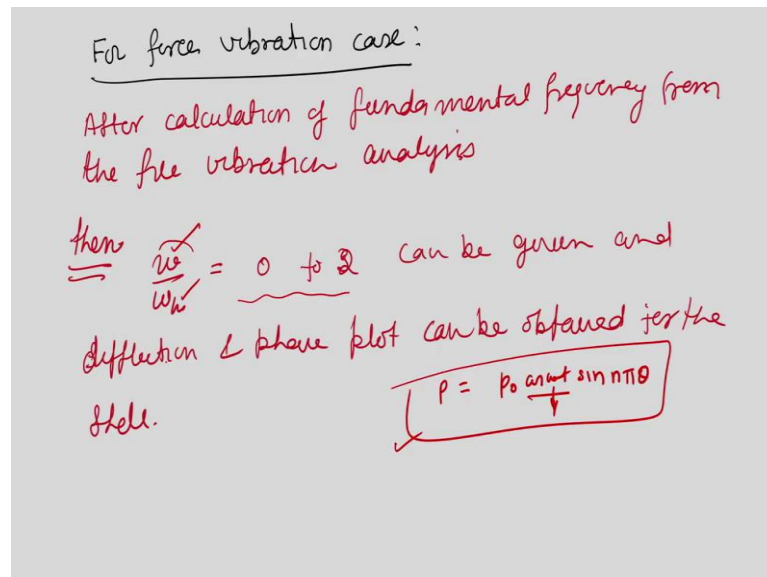 For forces vibration case:
After calculation of fundamental frequency from
the free vibration analysis
then w/wn = 0 to 2 can be given and
deflection & phase plot can be obtained for the
Shell.
P = P₀ cos ωt sin nπθ